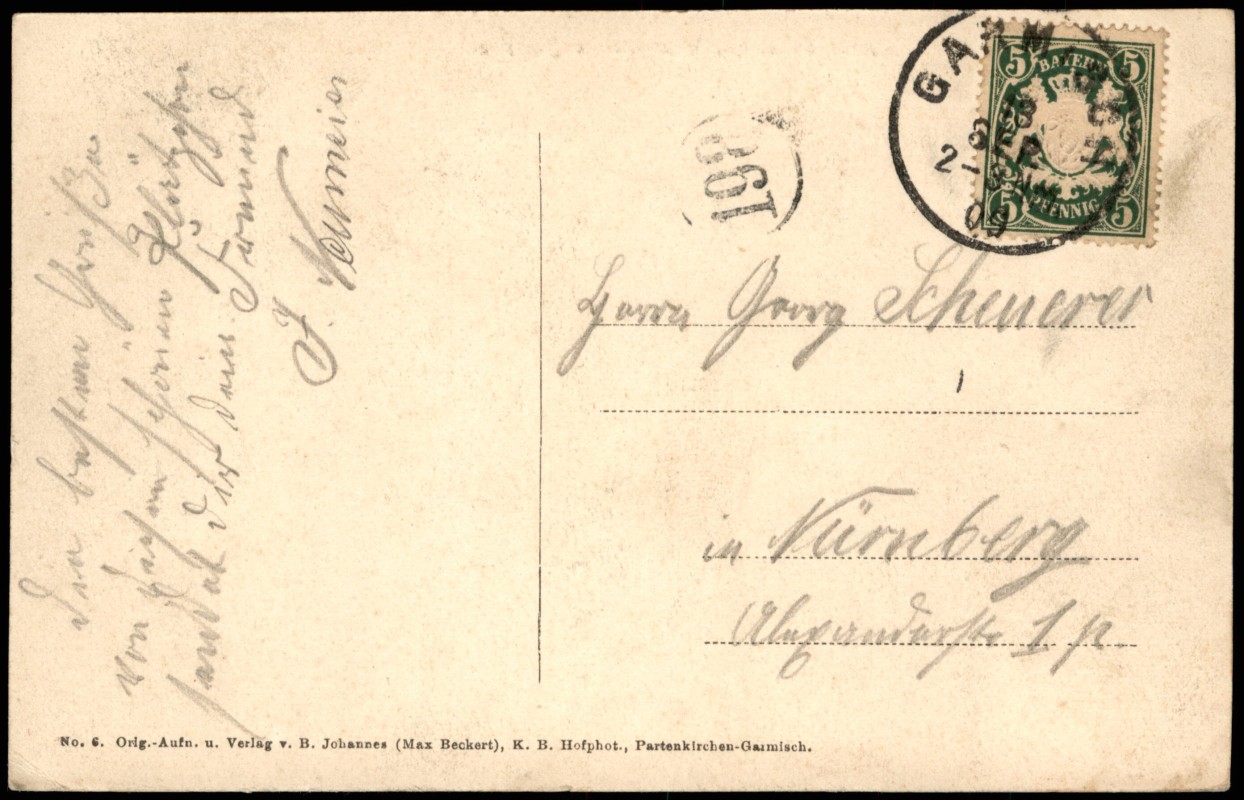 Die besten Grüße
von diesem schönen Plätzchen
sendet dir dein Freund
J. Neumeier
GARMISCH
2-3 NM
09
198
5 BAYERN 5
5 PFENNIG 5
Herrn Georg Scheuerer
in Nürnberg
Alexanderstr 1 p.
No. 6. Orig.-Aufn. u. Verlag v. B. Johannes (Max Beckert), K. B. Hofphot., Partenkirchen-Garmisch.